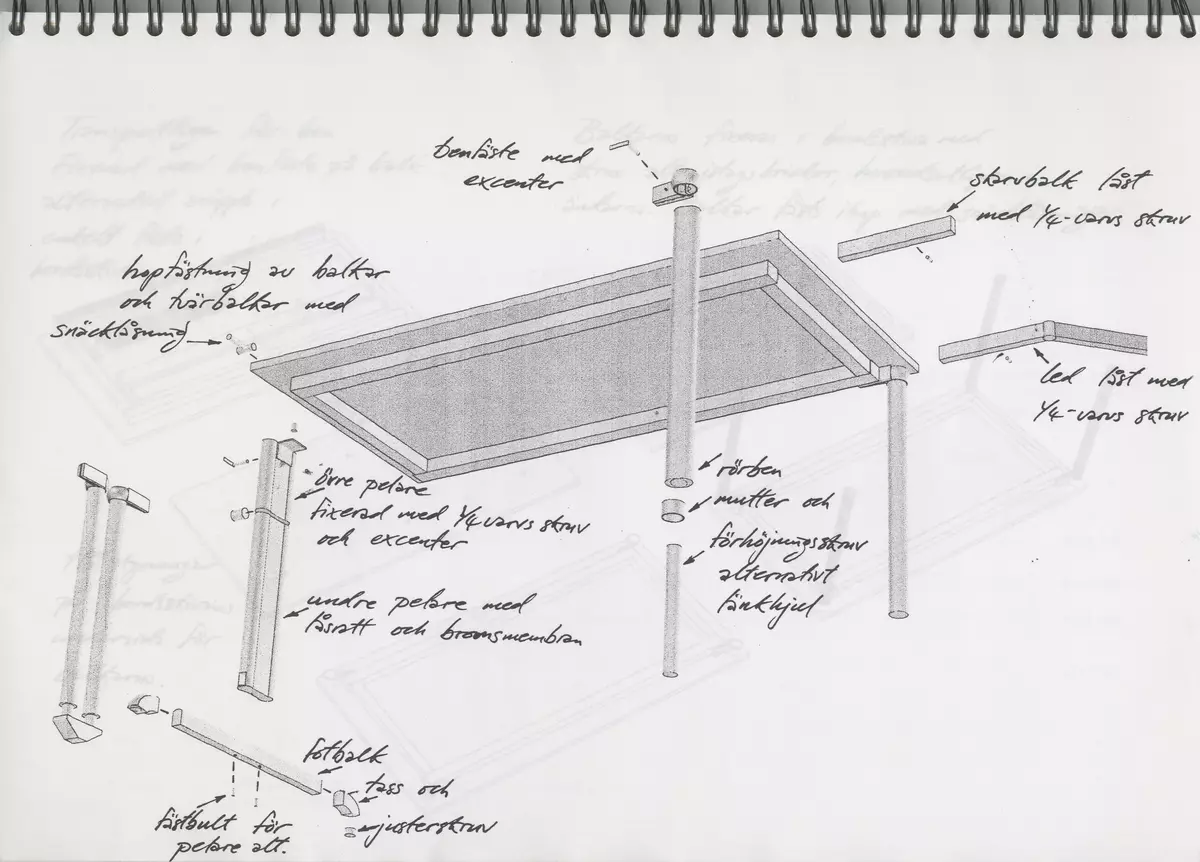 benfäste med
excenter
skarvbalk låst
med 1/4-varvs skruv
hopfästning av balkar
och tvärbalkar med
snäcklåsning
led låst med
1/4-varvs skruv
övre pelare
fixerad med 1/4 varvs skruv
och excenter
rörben
mutter och
förhöjningsskruv
alternativt
länkhjul
undre pelare med
låsratt och bromsmembran
fotbalk
tass och
justerskruv
fästbult för
pelare alt.